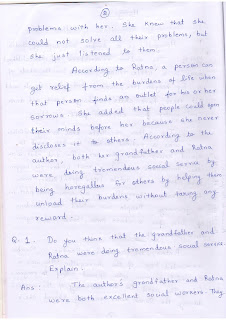 ②
problems with her. She knew that she
could not solve all their problems, but
she just listened to them.
According to Ratna, a person can
get relief from the burdens of life when
that person finds an outlet for his or her
sorrows. She added that people could open
their minds before her because she never
discloses it to others. According to the
author, both her grandfather and Ratna
were doing tremendous social service by
being horegallus for others by helping them
unload their burdens without taking any
reward.
Q. 1. Do you think that the grandfather and
Ratna were doing tremendous social service.
Explain.
Ans: The author's grandfather and Ratna
were both excellent social workers. They